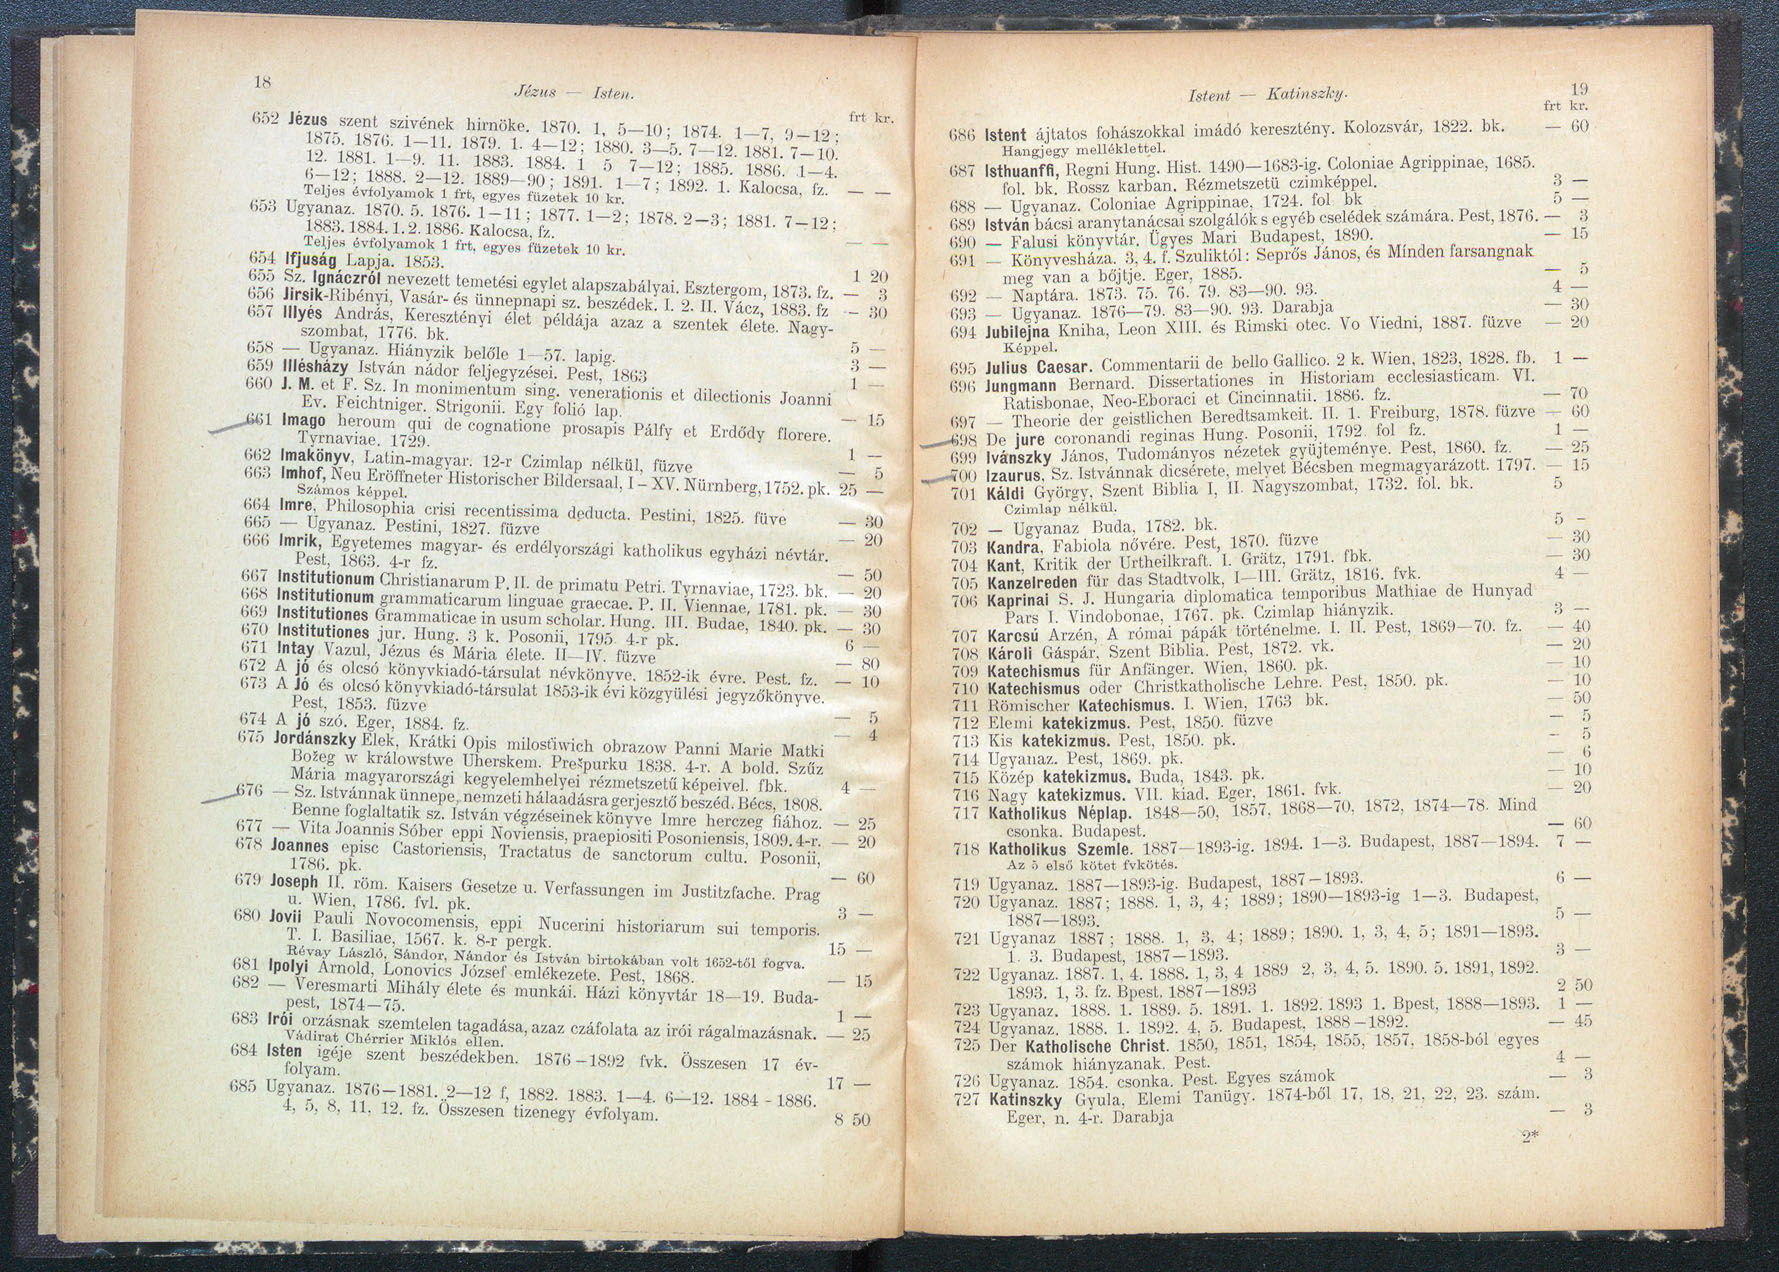 18
Jézus — Isten.
frt kr.
652 Jézus szent szivének hirnöke. 1870. 1, 5—10; 1874. 1—7, 9—12;
1875. 1876. 1—11. 1879. 1. 4—12; 1880. 3—5. 7—12. 1881. 7—10.
12. 1881. 1—9. 11. 1883. 1884. 1 5 7—12; 1885. 1886. 1—4.
6—12; 1888. 2—12. 1889—90; 1891. 1—7; 1892. 1. Kalocsa, fz. — —
Teljes évfolyamok 1 frt, egyes füzetek 10 kr.
653 Ugyanaz. 1870. 5. 1876. 1—11; 1877. 1—2; 1878. 2—3; 1881. 7—12;
1883. 1884. 1. 2. 1886. Kalocsa, fz.
Teljes évfolyamok 1 frt, egyes füzetek 10 kr. — —
654 Ifjuság Lapja. 1853.
655 Sz. Ignáczról nevezett temetési egylet alapszabályai. Esztergom, 1873. fz. 1 20
656 Jirsik-Ribényi, Vasár- és ünnepnapi sz. beszédek. I. 2. II. Vácz, 1883. fz — 3
657 Illyés András, Keresztényi élet példája azaz a szentek élete. Nagy- — 30
szombat, 1776. bk.
658 — Ugyanaz. Hiányzik belőle 1—57. lapig. 5 —
659 Illésházy István nádor feljegyzései. Pest, 1863 3 —
660 J. M. et F. Sz. In monimentum sing. venerationis et dilectionis Joanni 1 —
Ev. Feichtniger. Strigonii. Egy folió lap.
661 Imago heroum qui de cognatione prosapis Pálfy et Erdődy florere. — 15
Tyrnaviae. 1729.
662 Imakönyv, Latin-magyar. 12-r Czimlap nélkül, füzve 1 —
663 Imhof, Neu Eröffneter Historischer Bildersaal, I—XV. Nürnberg, 1752. pk. — 5
Számos képpel. 25 —
664 Imre, Philosophia crisi recentissima deducta. Pestini, 1825. füve
665 — Ugyanaz. Pestini, 1827. füzve — 30
666 Imrik, Egyetemes magyar- és erdélyországi katholikus egyházi névtár. — 20
Pest, 1863. 4-r fz.
667 Institutionum Christianarum P. II. de primatu Petri. Tyrnaviae, 1723. bk. — 50
668 Institutionum grammaticarum linguae graecae. P. II. Viennae, 1781. pk. — 20
669 Institutiones Grammaticae in usum scholar. Hung. III. Budae, 1840. pk. — 30
670 Institutiones jur. Hung. 3 k. Posonii, 1795. 4-r pk. — 30
671 Intay Vazul, Jézus és Mária élete. II—IV. füzve 6 —
672 A jó és olcsó könyvkiadó-társulat névkönyve. 1852-ik évre. Pest. fz. — 80
673 A Jó és olcsó könyvkiadó-társulat 1853-ik évi közgyülési jegyzőkönyve. — 10
Pest, 1853. füzve
674 A jó szó. Eger, 1884. fz. — 5
675 Jordánszky Elek, Krátki Opis milostiwich obrazow Panni Marie Matki — 4
Božeg w králowstwe Uherskem. Prešpurku 1838. 4-r. A bold. Szűz
Mária magyarországi kegyelemhelyei rézmetszetű képeivel. fbk. 4 —
676 — Sz. Istvánnak ünnepe, nemzeti hálaadásra gerjesztő beszéd. Bécs, 1808.
Benne foglaltatik sz. István végzéseinek könyve Imre herczeg fiához. — 25
677 — Vita Joannis Sóber eppi Noviensis, praepiositi Posoniensis, 1809. 4-r. — 20
678 Joannes episc Castoriensis, Tractatus de sanctorum cultu. Posonii,
1786. pk. — 60
679 Joseph II. röm. Kaisers Gesetze u. Verfassungen im Justitzfache. Prag
u. Wien, 1786. fvl. pk. 3 —
680 Jovii Pauli Novocomensis, eppi Nucerini historiarum sui temporis.
T. I. Basiliae, 1567. k. 8-r pergk. 15 —
Révay László, Sándor, Nándor és István birtokában volt 1652-től fogva.
681 Ipolyi Arnold, Lonovics József emlékezete. Pest, 1868. — 15
682 — Veresmarti Mihály élete és munkái. Házi könyvtár 18—19. Buda-
pest, 1874—75. 1 —
683 Irói orzásnak szemtelen tagadása, azaz czáfolata az irói rágalmazásnak. — 25
Vádirat Chérrier Miklós ellen.
684 Isten igéje szent beszédekben. 1876—1892 fvk. Összesen 17 év-
folyam. 17 —
685 Ugyanaz. 1876—1881. 2—12 f, 1882. 1883. 1—4. 6—12. 1884-1886.
4, 5, 8, 11, 12. fz. Összesen tizenegy évfolyam. 8 50
Istent — Katinszky.
19
frt kr.
686 Istent ájtatos fohászokkal imádó keresztény. Kolozsvár, 1822. bk. — 60
Hangjegy melléklettel.
687 Isthuanffi, Regni Hung. Hist. 1490—1683-ig. Coloniae Agrippinae, 1685.
fol. bk. Rossz karban. Rézmetszetü czimképpel. 3 —
688 — Ugyanaz. Coloniae Agrippinae, 1724. fol bk 5 —
689 István bácsi aranytanácsai szolgálók s egyéb cselédek számára. Pest, 1876. — 3
690 — Falusi könyvtár. Ügyes Mari Budapest, 1890. — 15
691 — Könyvesháza. 3, 4. f. Szuliktól: Seprős János, és Mínden farsangnak
meg van a bőjtje. Eger, 1885. — 5
692 — Naptára. 1873. 75. 76. 79. 83—90. 93. 4 —
693 — Ugyanaz. 1876—79. 83—90. 93. Darabja — 30
694 Jubilejna Kniha, Leon XIII. és Rimski otec. Vo Viedni, 1887. füzve — 20
Képpel.
695 Julius Caesar. Commentarii de bello Gallico. 2 k. Wien, 1823, 1828. fb. 1 —
696 Jungmann Bernard. Dissertationes in Historiam ecclesiasticam. VI.
Ratisbonae, Neo-Eboraci et Cincinnatii. 1886. fz. — 70
697 — Theorie der geistlichen Beredtsamkeit. II. 1. Freiburg, 1878. füzve — 60
698 De jure coronandi reginas Hung. Posonii, 1792. fol fz. 1 —
699 Ivánszky János, Tudományos nézetek gyüjteménye. Pest, 1860. fz. — 25
700 Izaurus, Sz. Istvánnak dicsérete, melyet Bécsben megmagyarázott. 1797. — 15
701 Káldi György, Szent Biblia I, II. Nagyszombat, 1732. fol. bk. 5
Czimlap nélkül.
702 — Ugyanaz Buda, 1782. bk. 5 -
703 Kandra, Fabiola nővére. Pest, 1870. füzve — 30
704 Kant, Kritik der Urtheilkraft. I. Grätz, 1791. fbk. — 30
705 Kanzelreden für das Stadtvolk, I—III. Grätz, 1816. fvk. 4 —
706 Kaprinai S. J. Hungaria diplomatica temporibus Mathiae de Hunyad
Pars I. Vindobonae, 1767. pk. Czimlap hiányzik. 3 —
707 Karcsú Arzén, A római pápák történelme. I. II. Pest, 1869—70. fz. — 40
708 Károli Gáspár, Szent Biblia. Pest, 1872. vk. — 20
709 Katechismus für Anfänger. Wien, 1860. pk. — 10
710 Katechismus oder Christkatholische Lehre. Pest, 1850. pk. — 10
711 Römischer Katechismus. I. Wien, 1763 bk. — 50
712 Elemi katekizmus. Pest, 1850. füzve — 5
713 Kis katekizmus. Pest, 1850. pk. — 5
714 Ugyanaz. Pest, 1869. pk. — 6
715 Közép katekizmus. Buda, 1843. pk. — 10
716 Nagy katekizmus. VII. kiad. Eger, 1861. fvk. — 20
717 Katholikus Néplap. 1848—50, 1857, 1868—70, 1872, 1874—78. Mind
csonka. Budapest. — 60
718 Katholikus Szemle. 1887—1893-ig. 1894. 1—3. Budapest, 1887—1894. 7 —
Az 5 első kötet fvkötés.
719 Ugyanaz. 1887—1893-ig. Budapest, 1887—1893. 6 —
720 Ugyanaz. 1887; 1888. 1, 3, 4; 1889; 1890—1893-ig 1—3. Budapest,
1887—1893. 5 —
721 Ugyanaz 1887; 1888. 1, 3, 4; 1889; 1890. 1, 3, 4, 5; 1891—1893.
1. 3. Budapest, 1887—1893. 3 —
722 Ugyanaz. 1887. 1, 4. 1888. 1, 3, 4 1889 2, 3, 4, 5. 1890. 5. 1891, 1892.
1893. 1, 3. fz. Bpest. 1887—1893 2 50
723 Ugyanaz. 1888. 1. 1889. 5. 1891. 1. 1892. 1893 1. Bpest, 1888—1893. 1 —
724 Ugyanaz. 1888. 1. 1892. 4, 5. Budapest, 1888—1892. — 45
725 Der Katholische Christ. 1850, 1851, 1854, 1855, 1857, 1858-ból egyes
számok hiányzanak. Pest. 4 —
726 Ugyanaz. 1854. csonka. Pest. Egyes számok — 3
727 Katinszky Gyula, Elemi Tanügy. 1874-ből 17, 18, 21, 22, 23. szám.
Eger, n. 4-r. Darabja — 3
2*